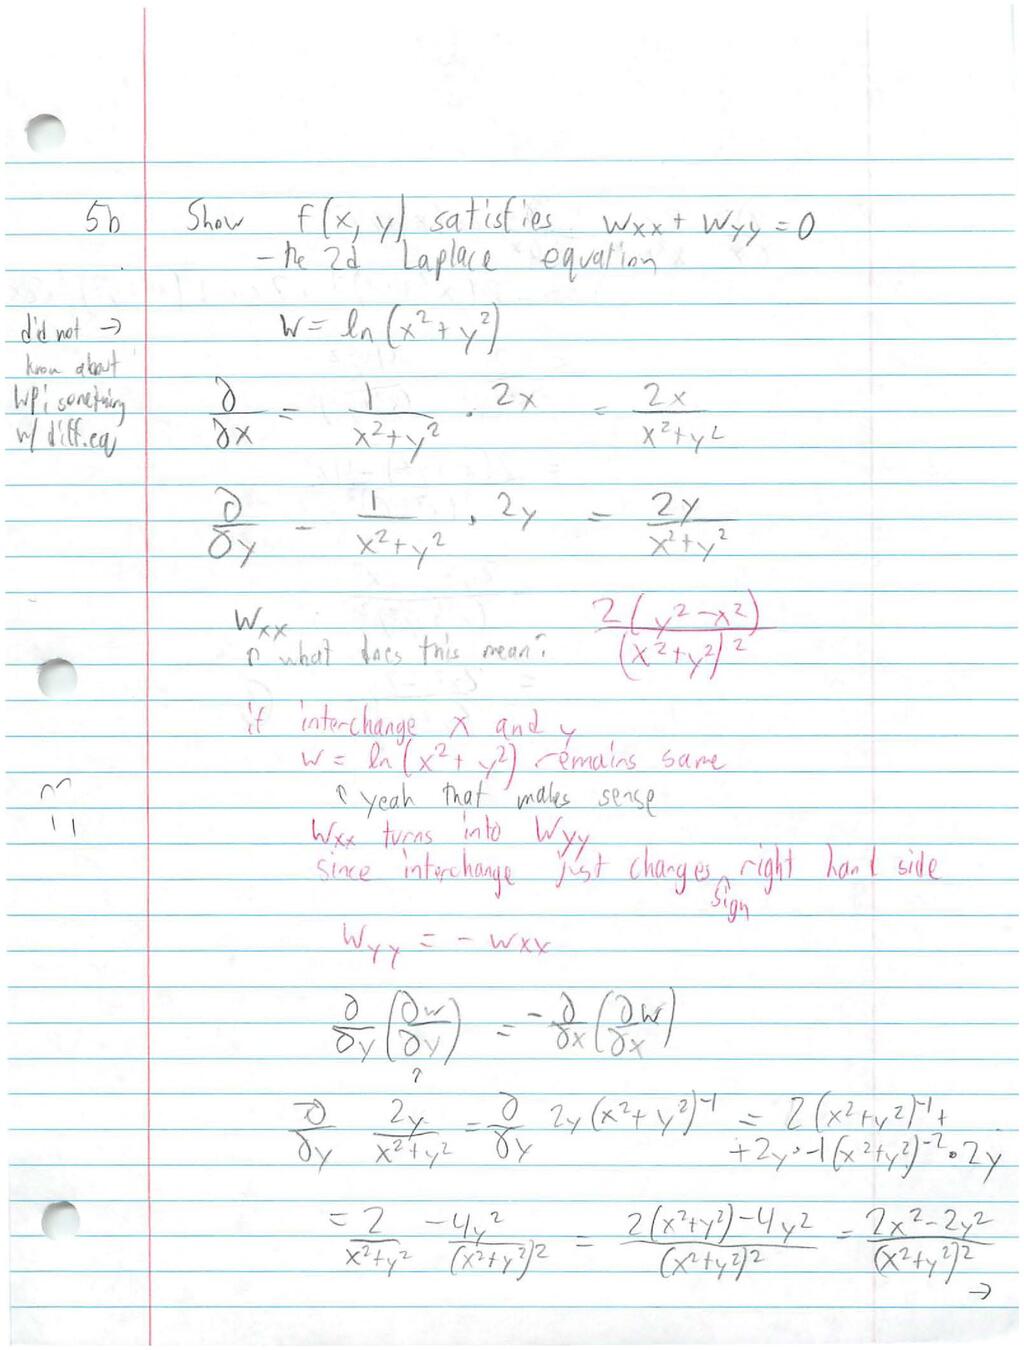 5b Show f(x, y) satisfies wxx + wyy = 0
- the 2d Laplace equation
did not →
know about
WP; something
w/ diff.eq
W = ln (x² + y²)
∂/∂x = 1/(x²+y²) · 2x = 2x/(x²+y²)
∂/∂y - 1/(x²+y²) · 2y = 2y/(x²+y²)
Wxx 2(y²-x²)/(x²+y²)²
↑ what does this mean?
if interchange x and y
w = ln (x² + y²) remains same
↑ yeah that makes sense
Wxx turns into Wyy
since interchange just changes right hand side
sign
Wyy = - wxx
∂/∂y (∂w/∂y) = -∂/∂x (∂w/∂x)
?
∂/∂y 2y/(x²+y²) = ∂/∂y 2y(x²+y²)⁻¹ = 2(x²+y²)⁻¹+
+2y·-1(x²+y²)⁻²·2y
= 2/(x²+y²) -4y²/(x²+y²)² = (2(x²+y²)-4y²)/(x²+y²)² = (2x²-2y²)/(x²+y²)²
→